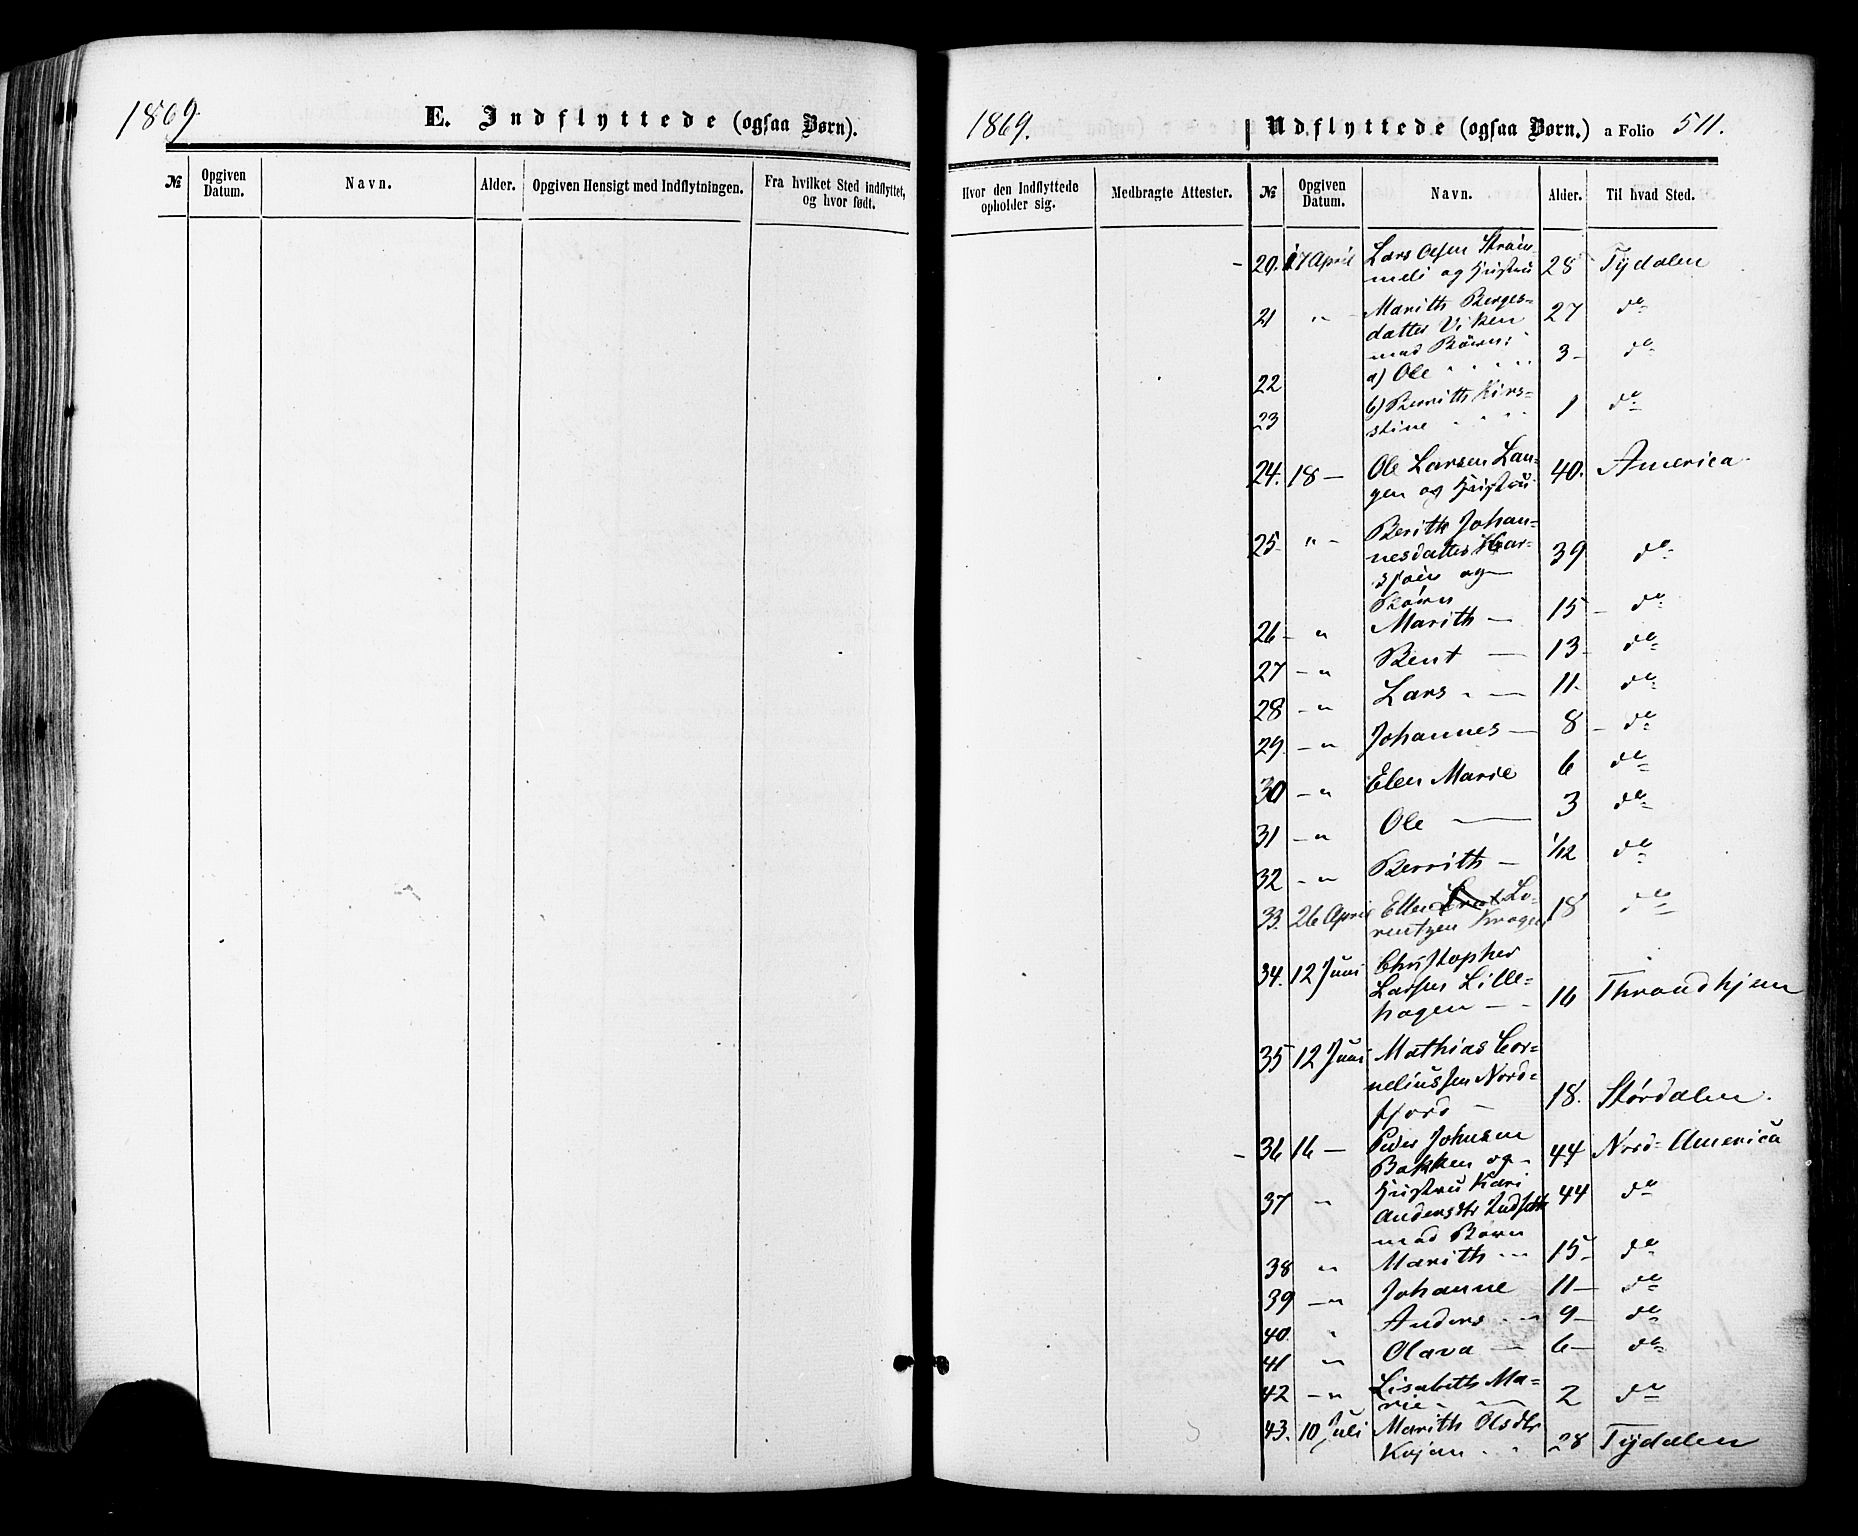 1869.
E. Indflyttede (ogsaa Børn).
№
Opgiven Datum.
Navn.
Alder.
Opgiven Hensigt med Indflytningen.
Fra hvilket Sted indflyttet, og hvor født.
1869.
Udflyttede (ogsaa Børn.) a Folio 511.
Hvor den Indflyttede opholder sig.
Medbragte Attester.
№
Opgiven Datum.
Navn.
Alder.
Til hvad Sted.
20. 17 April Lars Olsen Strøm-
meli og Hustru 28 Tydalen
21 " - Marith Berges-
datter Viken 27 do
med Børn:
22 a) Ole 3 - do
23 b) Berrith Kirs-
stine 1 do
24. 18 - Ole Larsen Lan-
gen og Hustru 40. America
25 " - Berith Johan-
nesdatter Kar-
sjøen og 39 do
Børn
26 - " Marith - 15 - do
27 - " Bent - 13 - do
28 - " Lars - 11. do
29 - " Johannes - 8 - do
30 - " Elen Marie 6 do
31 - " Ole - 3 do
32 - " Berrith - 1/12 do
33. 26 April Ellen Lo-
rentzen Krogen 18 do
34. 12 Juni Christopher
Larsen Lille-
hagen - 16 Throndhjem
35 12 Juni Mathias Cor-
neliussen Nord-
fjord - 18. Størdalen.
36 16 - Peder Johnsen
Bakken og - 44 Nord-America
37 " Hustru Kari
Andersdtr Indsett 44 do
med Børn
38 " Marith 15 - do
39 - " Johanne 11 - do
40 " Anders 9 - do
41 " Olava - 6 - do
42 - " Lisabeth Ma-
rie 2 do
43. 10 Juli Marith Olsdtr
Kojan 28 Tydalen